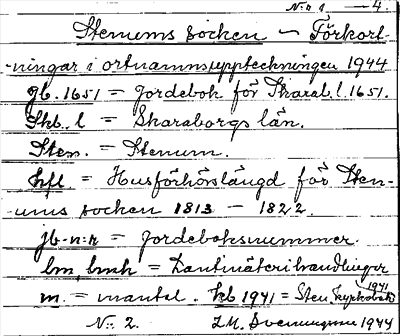 N:r 1 — 4.
Stenums socken — Förkort-
-ningar i ortnamnsuppteckningen 1944
jb. 1651 = Jordebok för Skarab. l. 1651.
Skb. l = Skaraborgs län.
Sten. = Stenum.
hfl. = Husförhörslängd för Sten-
-ums socken 1813 — 1822.
jb-n:r = Jordeboksnummer.
lm, lmh = Lantmäterihandlingar
m. = mantal. kb 1941 = Sten. kyrkobok 1941
N:r 2. 1944